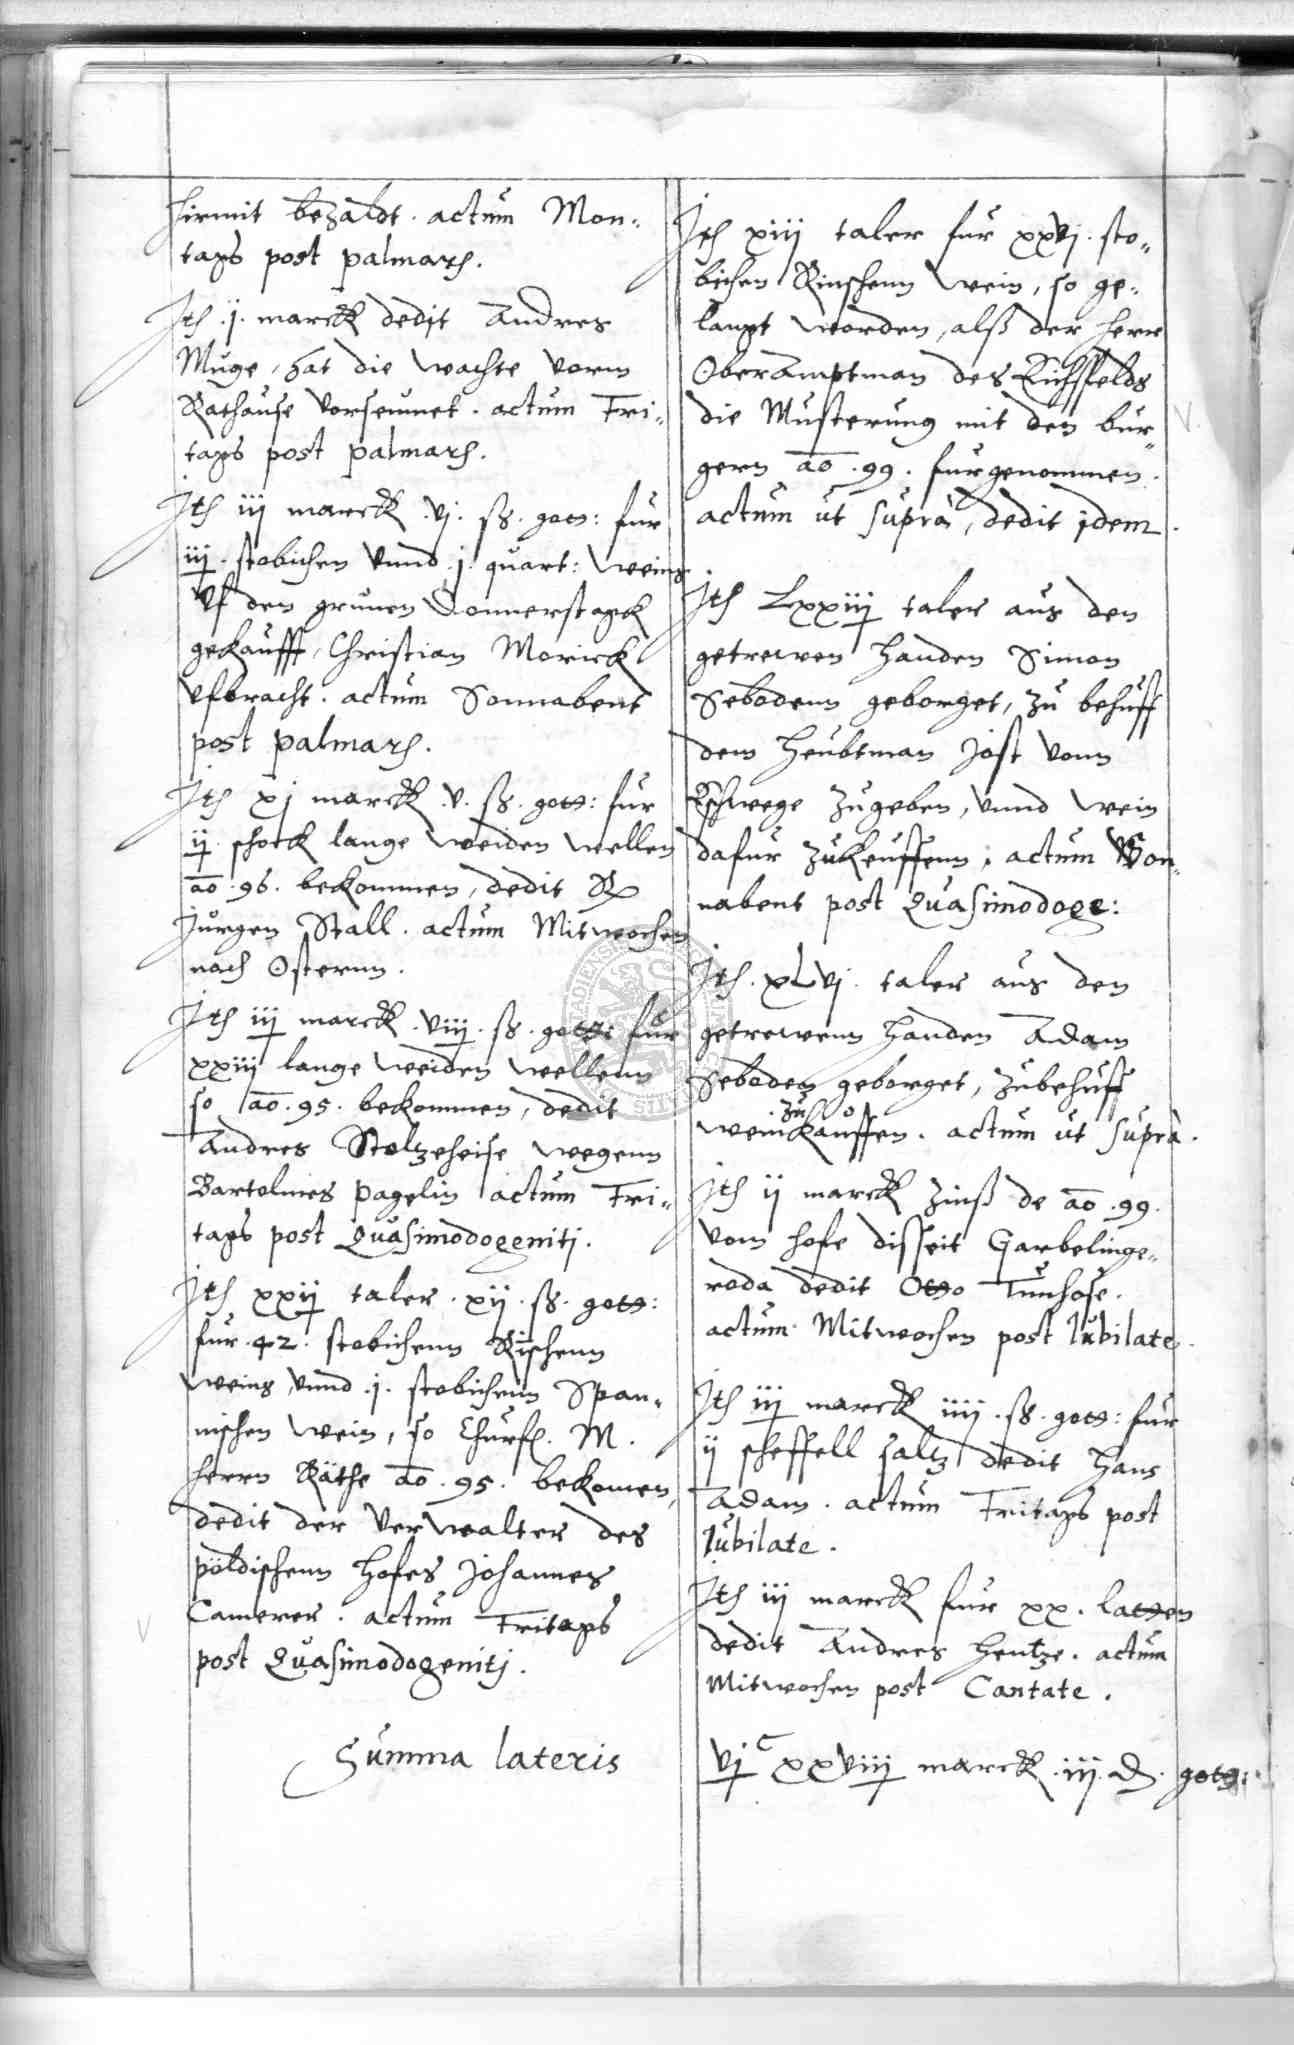 hirmit bezaldt. actum Mon-
tags post palmarum.
Itm .j. marck dedit Andres
Muge, hat die wachte vorm
Rathause vorseumet. actum Fri-
tags post palmarum.
Itm iij marck .vj. ß. gott: fur
iij. stobichen vnnd j. quart: weins
vf den grunen Donnerstagk
gekaufft, Christian Morick
vfbracht. actum Sonnabent
post palmarum.
Itm xj marck .v. ß. gott: fur
ij. schock lange weiden wellen
ao .96. bekommen, dedit
Jurgen Stall. actum Mitwochen
nach Osternn.
Itm iij marck .viij. ß. gott: fur
xxiij lange weiden wellenn
so ao .95. bekommen, dedit
Andres Stoltzeheise wegenn
Bartelmes Pagelin actum Fri-
tags post Quasimodogenitj.
Itm xxij taler .xij. ß. gott:
fur .42. stobichenn Rischenn
weins vnnd .j. stobichenn Span-
nischen wein, so Churf. M.
herrn Räthe ao .95. bekomen,
dedit der Verwalter des
pöldischenn hofes Johannes
Camerer. actum Fritags
post Quasimodogenitj.
Summa lateris
Itm xiij taler fur xxvj. sto-
bichen Rinschenn wein, so ge-
langt worden, alß der herr
Oberamptman des Eichsfelds
die Musterung mit den bur-
gern ao .99. furgenommen.
actum ut suprà, dedit idem.
Itm Lxxiij taler aus den
getrewen handen Simon
Sebodenn geborget, zu behuff
dem Heubtman Jost vonn
Eschwege zugeben, vnnd wein
dafur zukeuffenn, actum Son-
nabent post Quasimodoge:
Itm. xLvj. taler aus den
getrewenn handen Adam
Seboden geborget, zubehuff
wein zu kauffen. actum ut suprà.
Itm ij marck zinß de ao .99.
vom hofe disseit Garbelinge-
roda dedit Otto Tunhose.
actum Mitwochen post Iubilate.
Itm iij marck iiij. ß. gott: fur
ij scheffell saltz dedit Hans
Adam. actum Fritags post
Iubilate.
Itm iij marck fur xx. latten
dedit Andres Hentze. actum
Mitwochen post Cantate.
vj C xxviij marck .iij. d. gott: